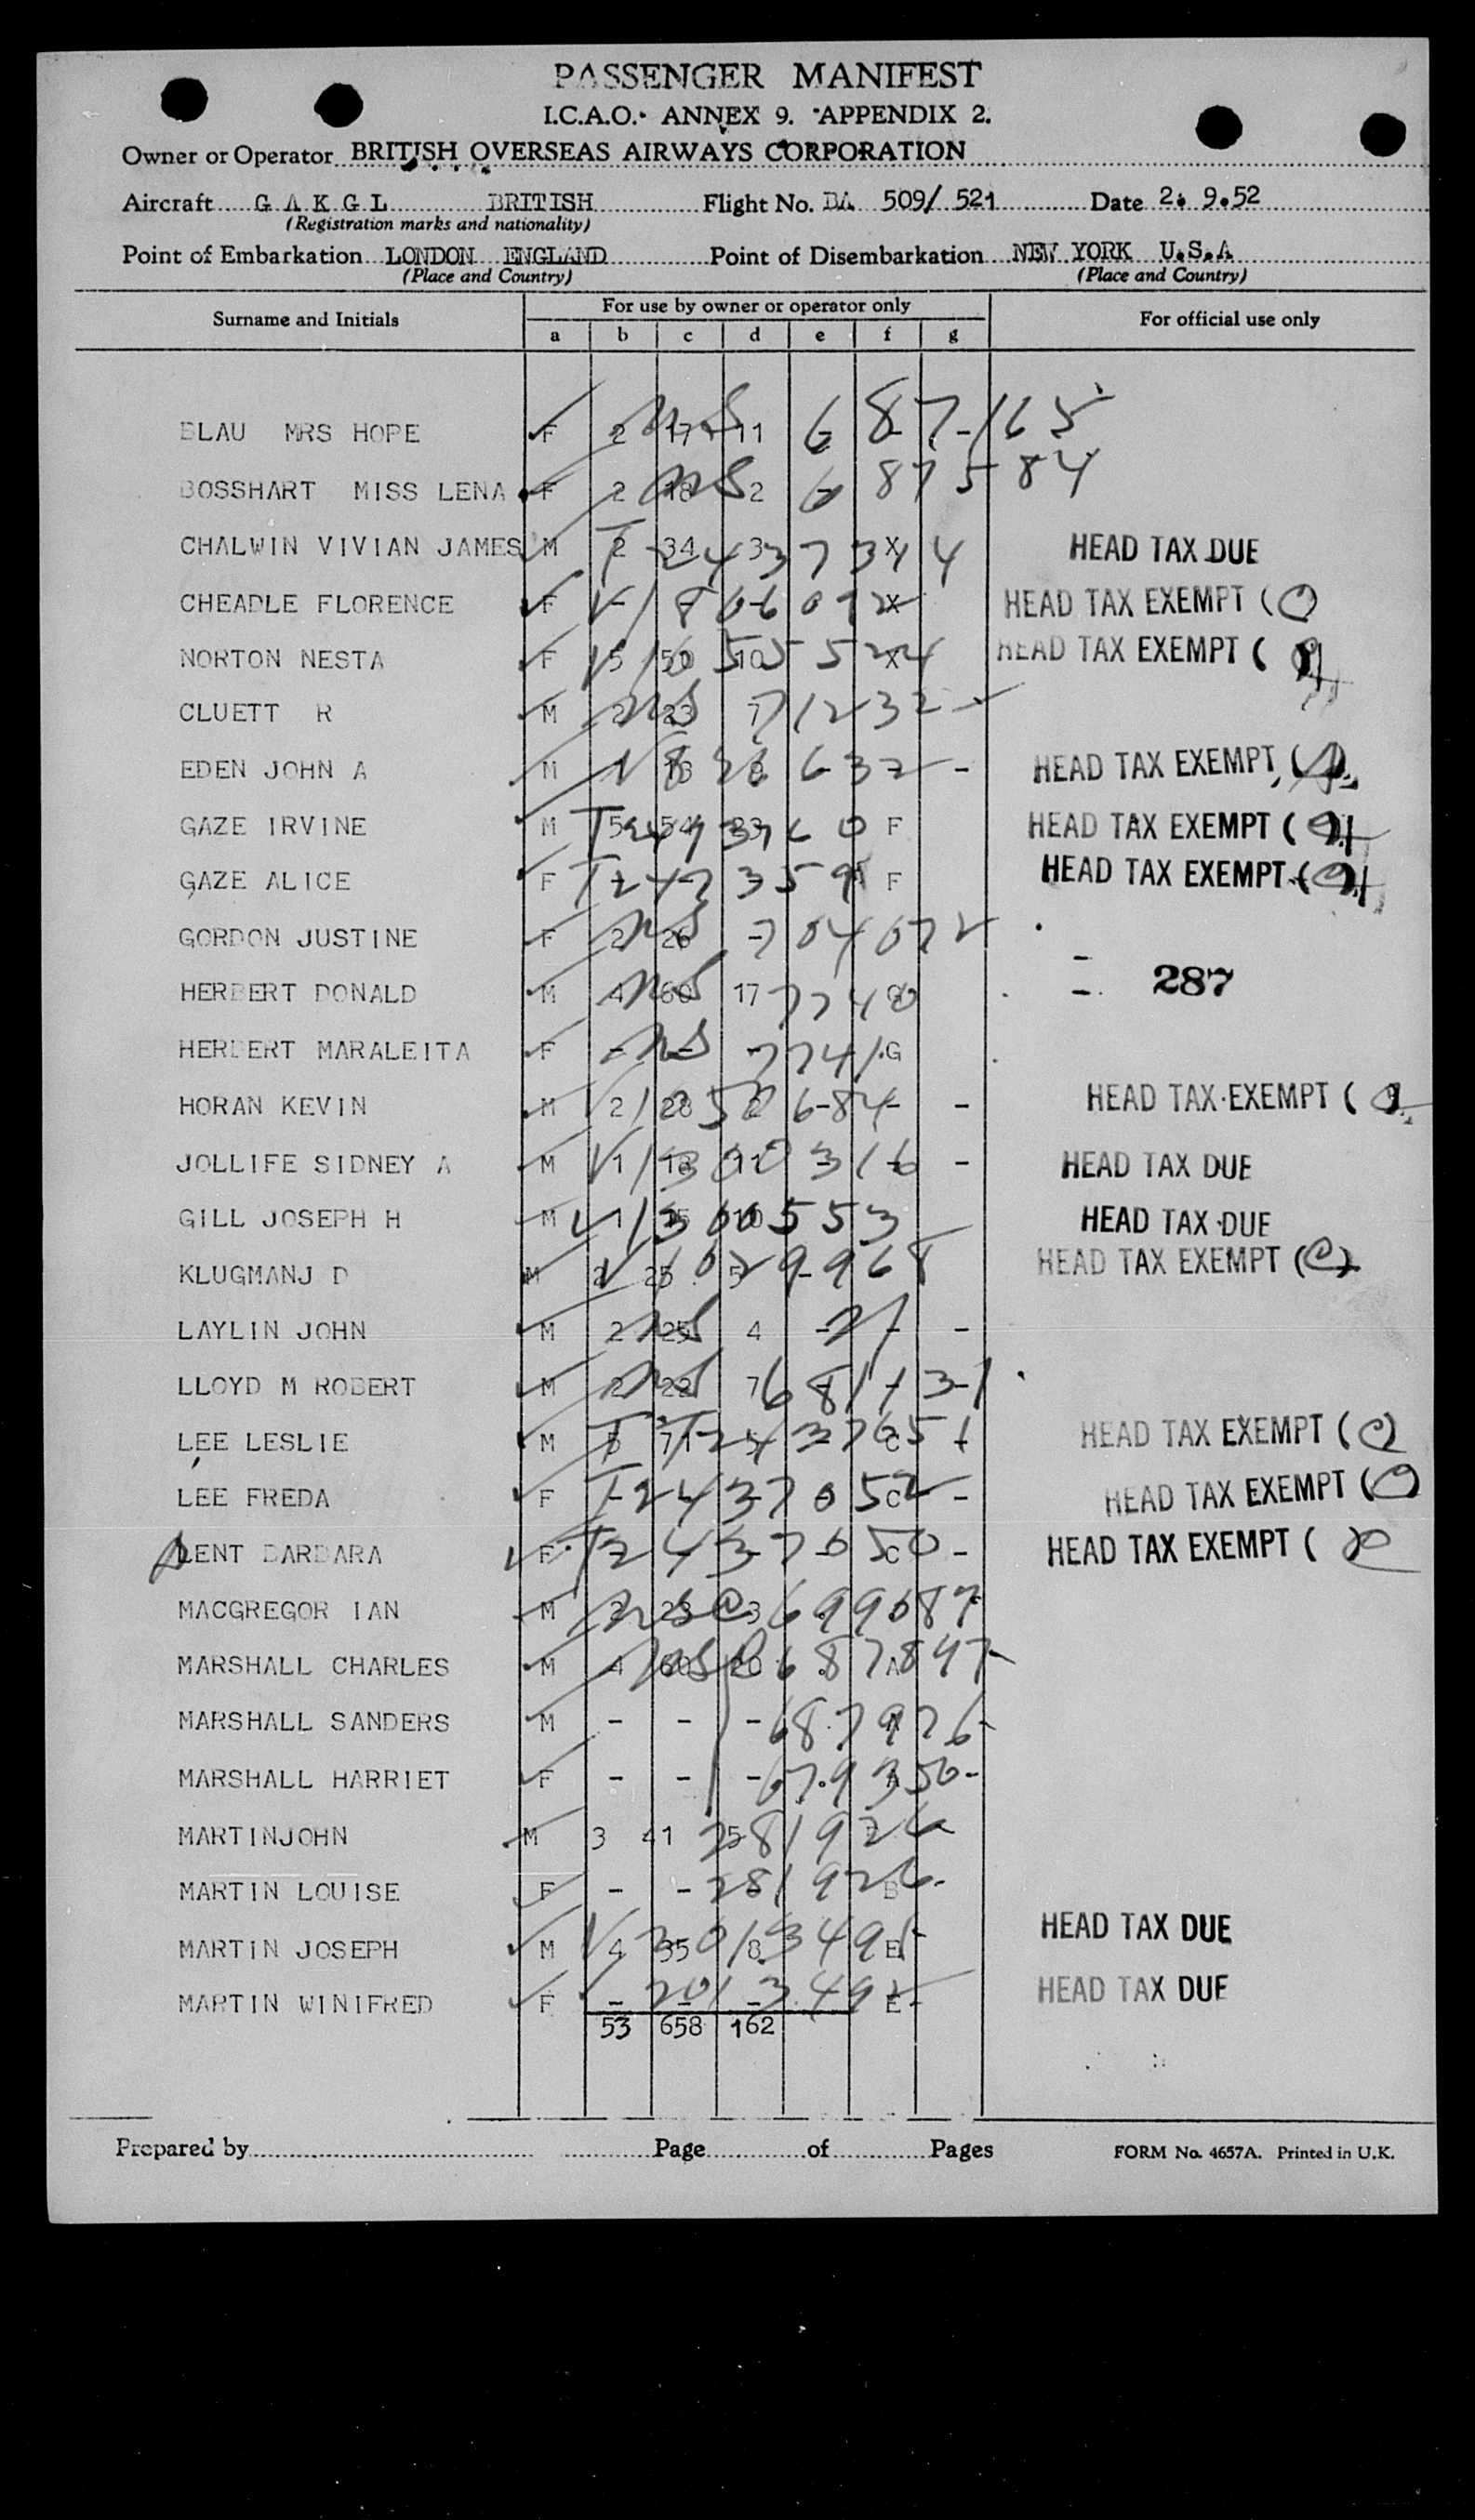 PASSENGER MANIFEST
I.C.A.O. ANNEX 9. APPENDIX 2.
Owner or Operator BRITISH OVERSEAS AIRWAYS CORPORATION
Aircraft G A K G L BRITISH Flight No. BA 509/ 521 Date 2. 9.52
(Registration marks and nationality)
Point of Embarkation LONDON ENGLAND Point of Disembarkation NEW YORK U.S.A
(Place and Country) (Place and Country)
Surname and Initials For use by owner or operator only For official use only
a b c d e f g
BLAU MRS HOPE F 2 17 11 - - - 687165
BOSSHART MISS LENA F 2 18 2 - 687584
CHALWIN VIVIAN JAMES M 2 34 3 X T2437344 HEAD TAX DUE
CHEADLE FLORENCE F - - - X HEAD TAX EXEMPT (
NORTON NESTA F 5 50 10 X HEAD TAX EXEMPT (
CLUETT R M 2 23 7 71232
EDEN JOHN A M - HEAD TAX EXEMPT (
GAZE IRVINE M 5 54 23 F HEAD TAX EXEMPT (
GAZE ALICE F - - - F HEAD TAX EXEMPT (
GORDON JUSTINE F 2 26 - 704072
HERBERT DONALD M 4 60 17 G 7740 287
HERBERT MARALEITA F - - - G 7741
HORAN KEVIN M 2 28 2 - - - HEAD TAX EXEMPT (
JOLLIFE SIDNEY A M 1 18 11 - - - V1300316 HEAD TAX DUE
GILL JOSEPH H M 1 15 10 V1300553 HEAD TAX DUE
KLUGMANJ D M 2 25 5 - HEAD TAX EXEMPT (
LAYLIN JOHN M 2 25 4 - - - 21
LLOYD M ROBERT M 2 22 7 - - - 681131
LEE LESLIE M 5 71 5 - C - T2437651 HEAD TAX EXEMPT (
LEE FREDA F - - - - C - T2437052 HEAD TAX EXEMPT (
LENT BARBARA F - - - - C - T2437050 HEAD TAX EXEMPT (
MACGREGOR IAN M 2 23 3 699087
MARSHALL CHARLES M 4 60 20 A 687847
MARSHALL SANDERS M - - - A 687976
MARSHALL HARRIET F - - - A 679350
MARTINJOHN M 3 41 5 281926
MARTIN LOUISE F - - - B 281926
MARTIN JOSEPH M 4 35 8 E HEAD TAX DUE
MARTIN WINIFRED F - - - E - HEAD TAX DUE
53 658 162
Prepared by Page of Pages FORM No. 4657A. Printed in U.K.